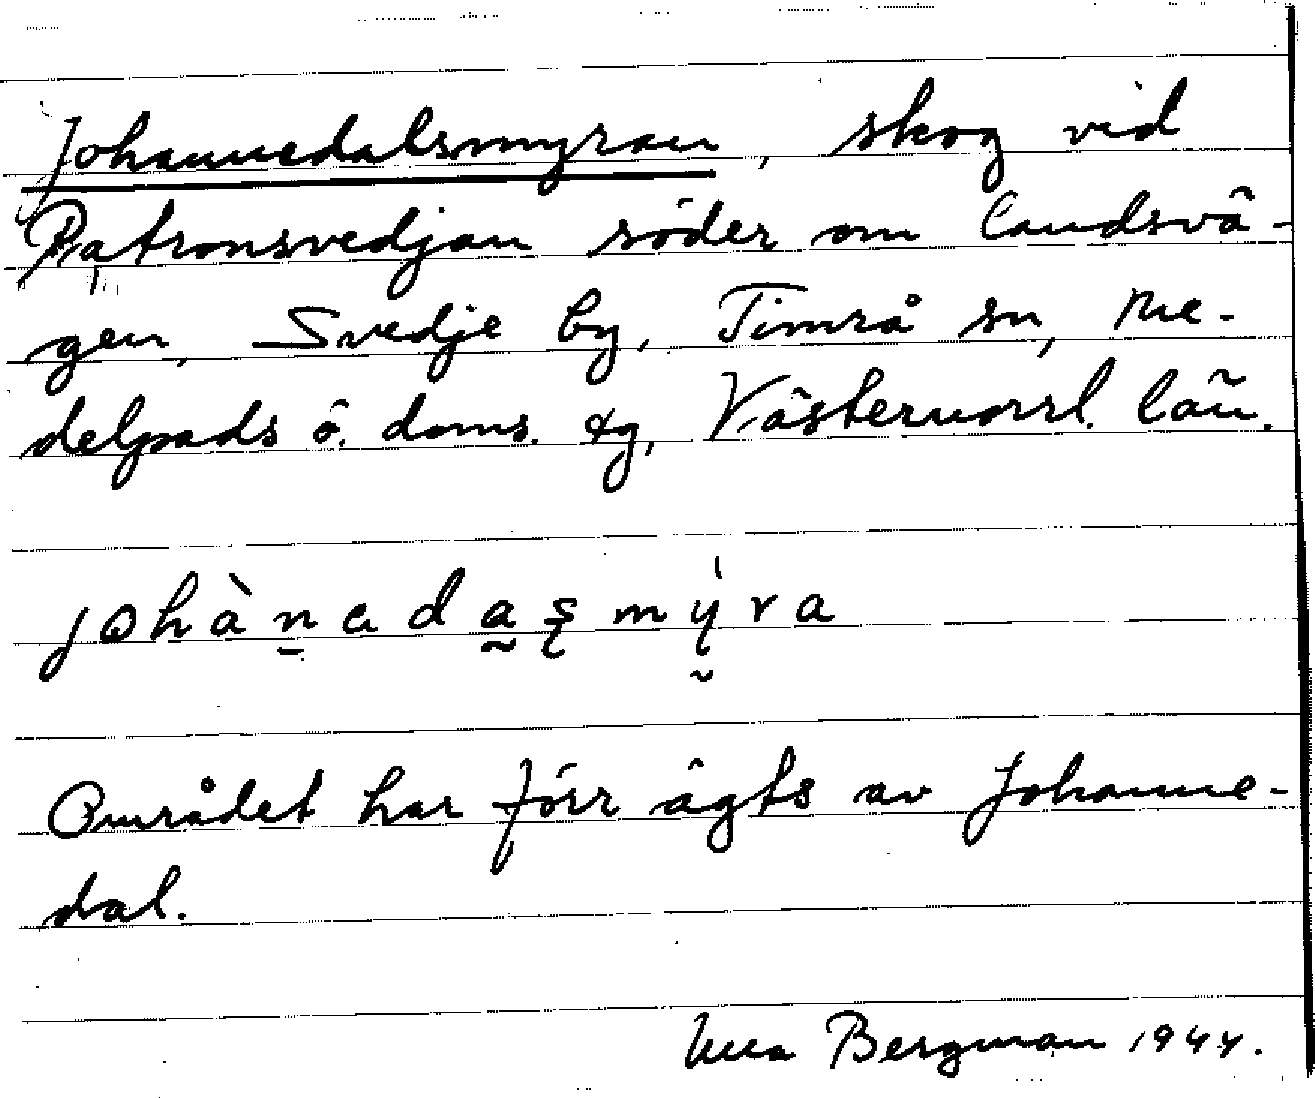 Johannedalsmyran, skog vid
Patronsvedjan söder om landsvä-
gen, Svedje by, Timrå sn, Me-
delpads ö. doms. tg, Västernorrl. län.
johànadas̨mýra
Området har förr ägts av Johanne-
dal.
Bergman 1944.